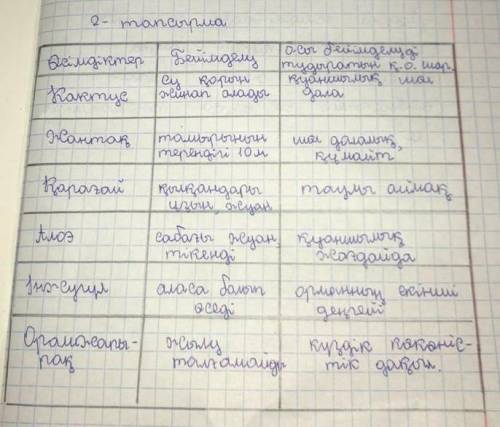 2- тапсырма
Өсімдіктер
Бейімделу
Осы бейімделуді
тудыратын қ.о. шар.
Кактус
су қорын
жинап алады
қуаншылық шөл
дала
Жантақ
тамырының
тереңдігі 10м
шөл далалық,
құмайт
Қарағай
қылқандары
ұзын, жуан
таулы аймақ
Алоэ
сабағы жуан,
тікенді
қуаншылық
жағдайда
Інжугүл
аласа болып
өседі
орманның екінші
деңгейі
Орамжапы-
рақ
жылу
талғамайды
күздік көкөніс-
тік дақыл.